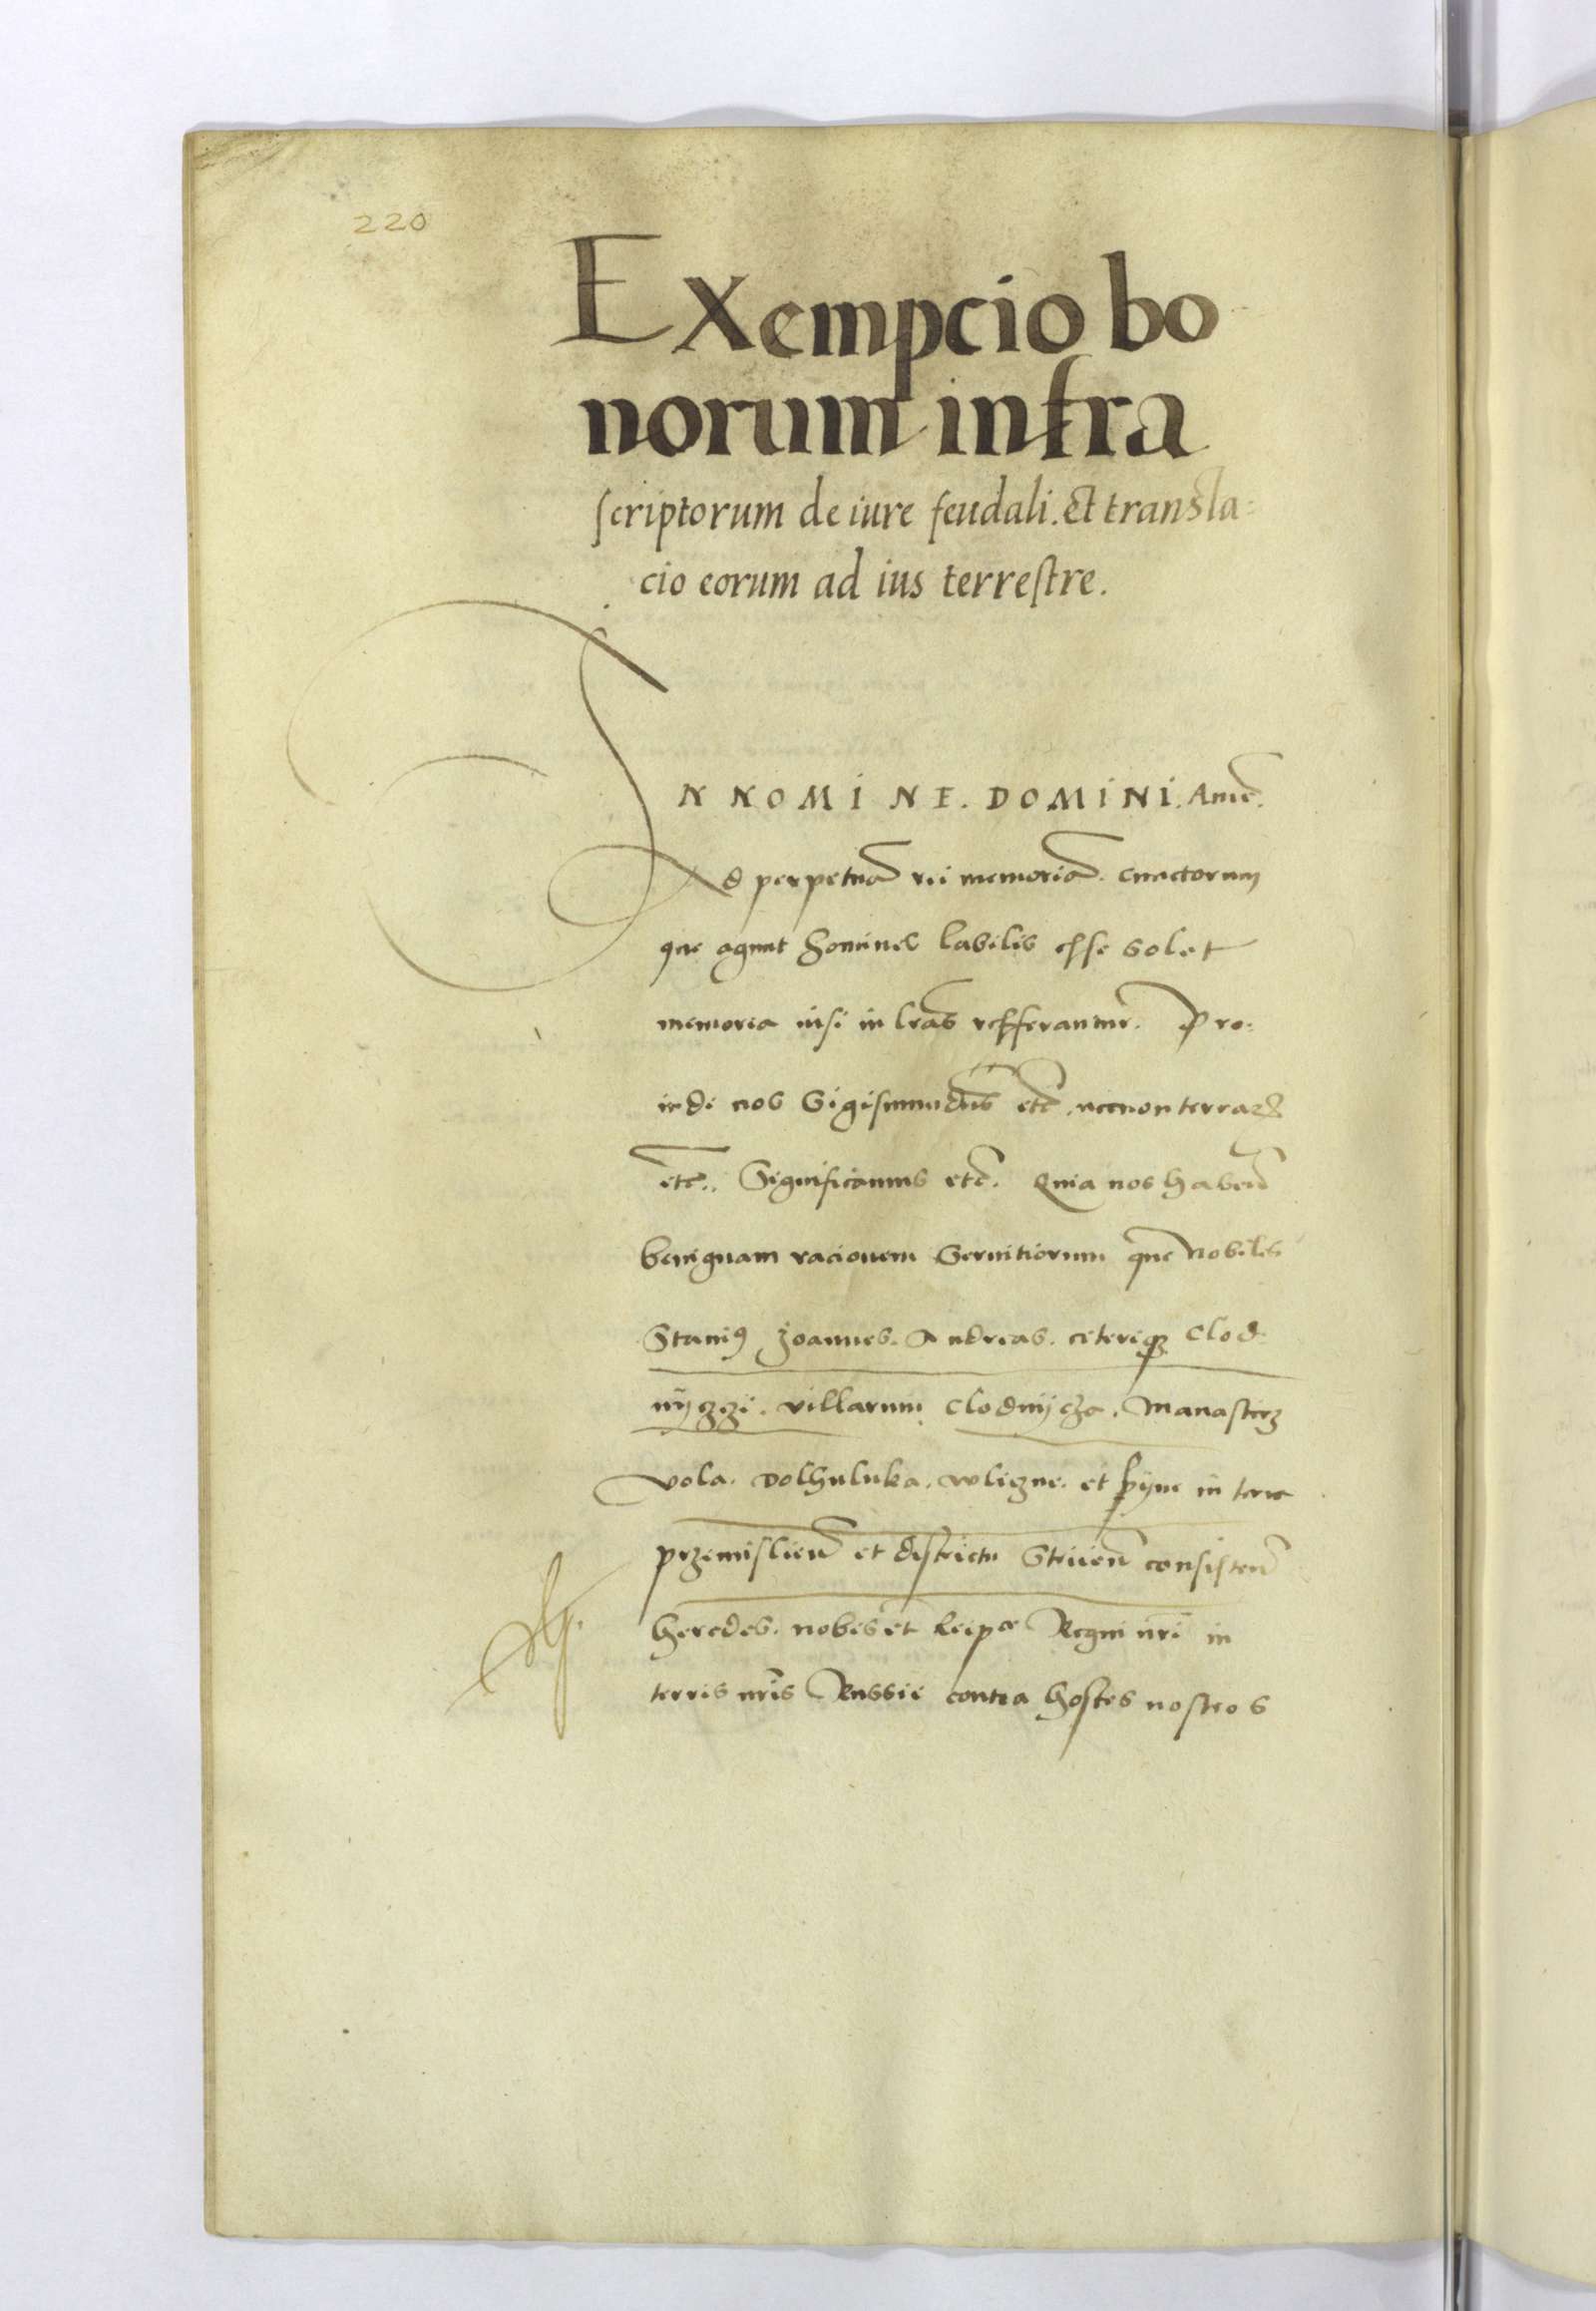 220
Exempcio bo
norum infra
scriptorum de iure feudali. et transla=
cio eorum ad ius terrestre.
IN NOMINE. DOMINI. Amē.
Ad perpetuā rei memoriā. cunctorum
que agunt homines labilis esse solet
memoria nisi in lrās refferantur. Pro=
inde nos Sigismundus etc̄. necnon terrarꝝ
etc̄.. Significamus etc̄. Quia nos habeñ
benignam racionem Servitiorum que Nobiles
Staniꝰ Joannes. Andreas. ceteriqꝫ Clod=
nyczi. villarum Clodnycza. Manasterz
Vola. Dolhuluka. Wlizne. et Hyne in terra
przemislieñ et districtu Strieñ consisteñ
heredes. nobis et Reipce Regni nri in
terris nris Russie contra hostes nostros